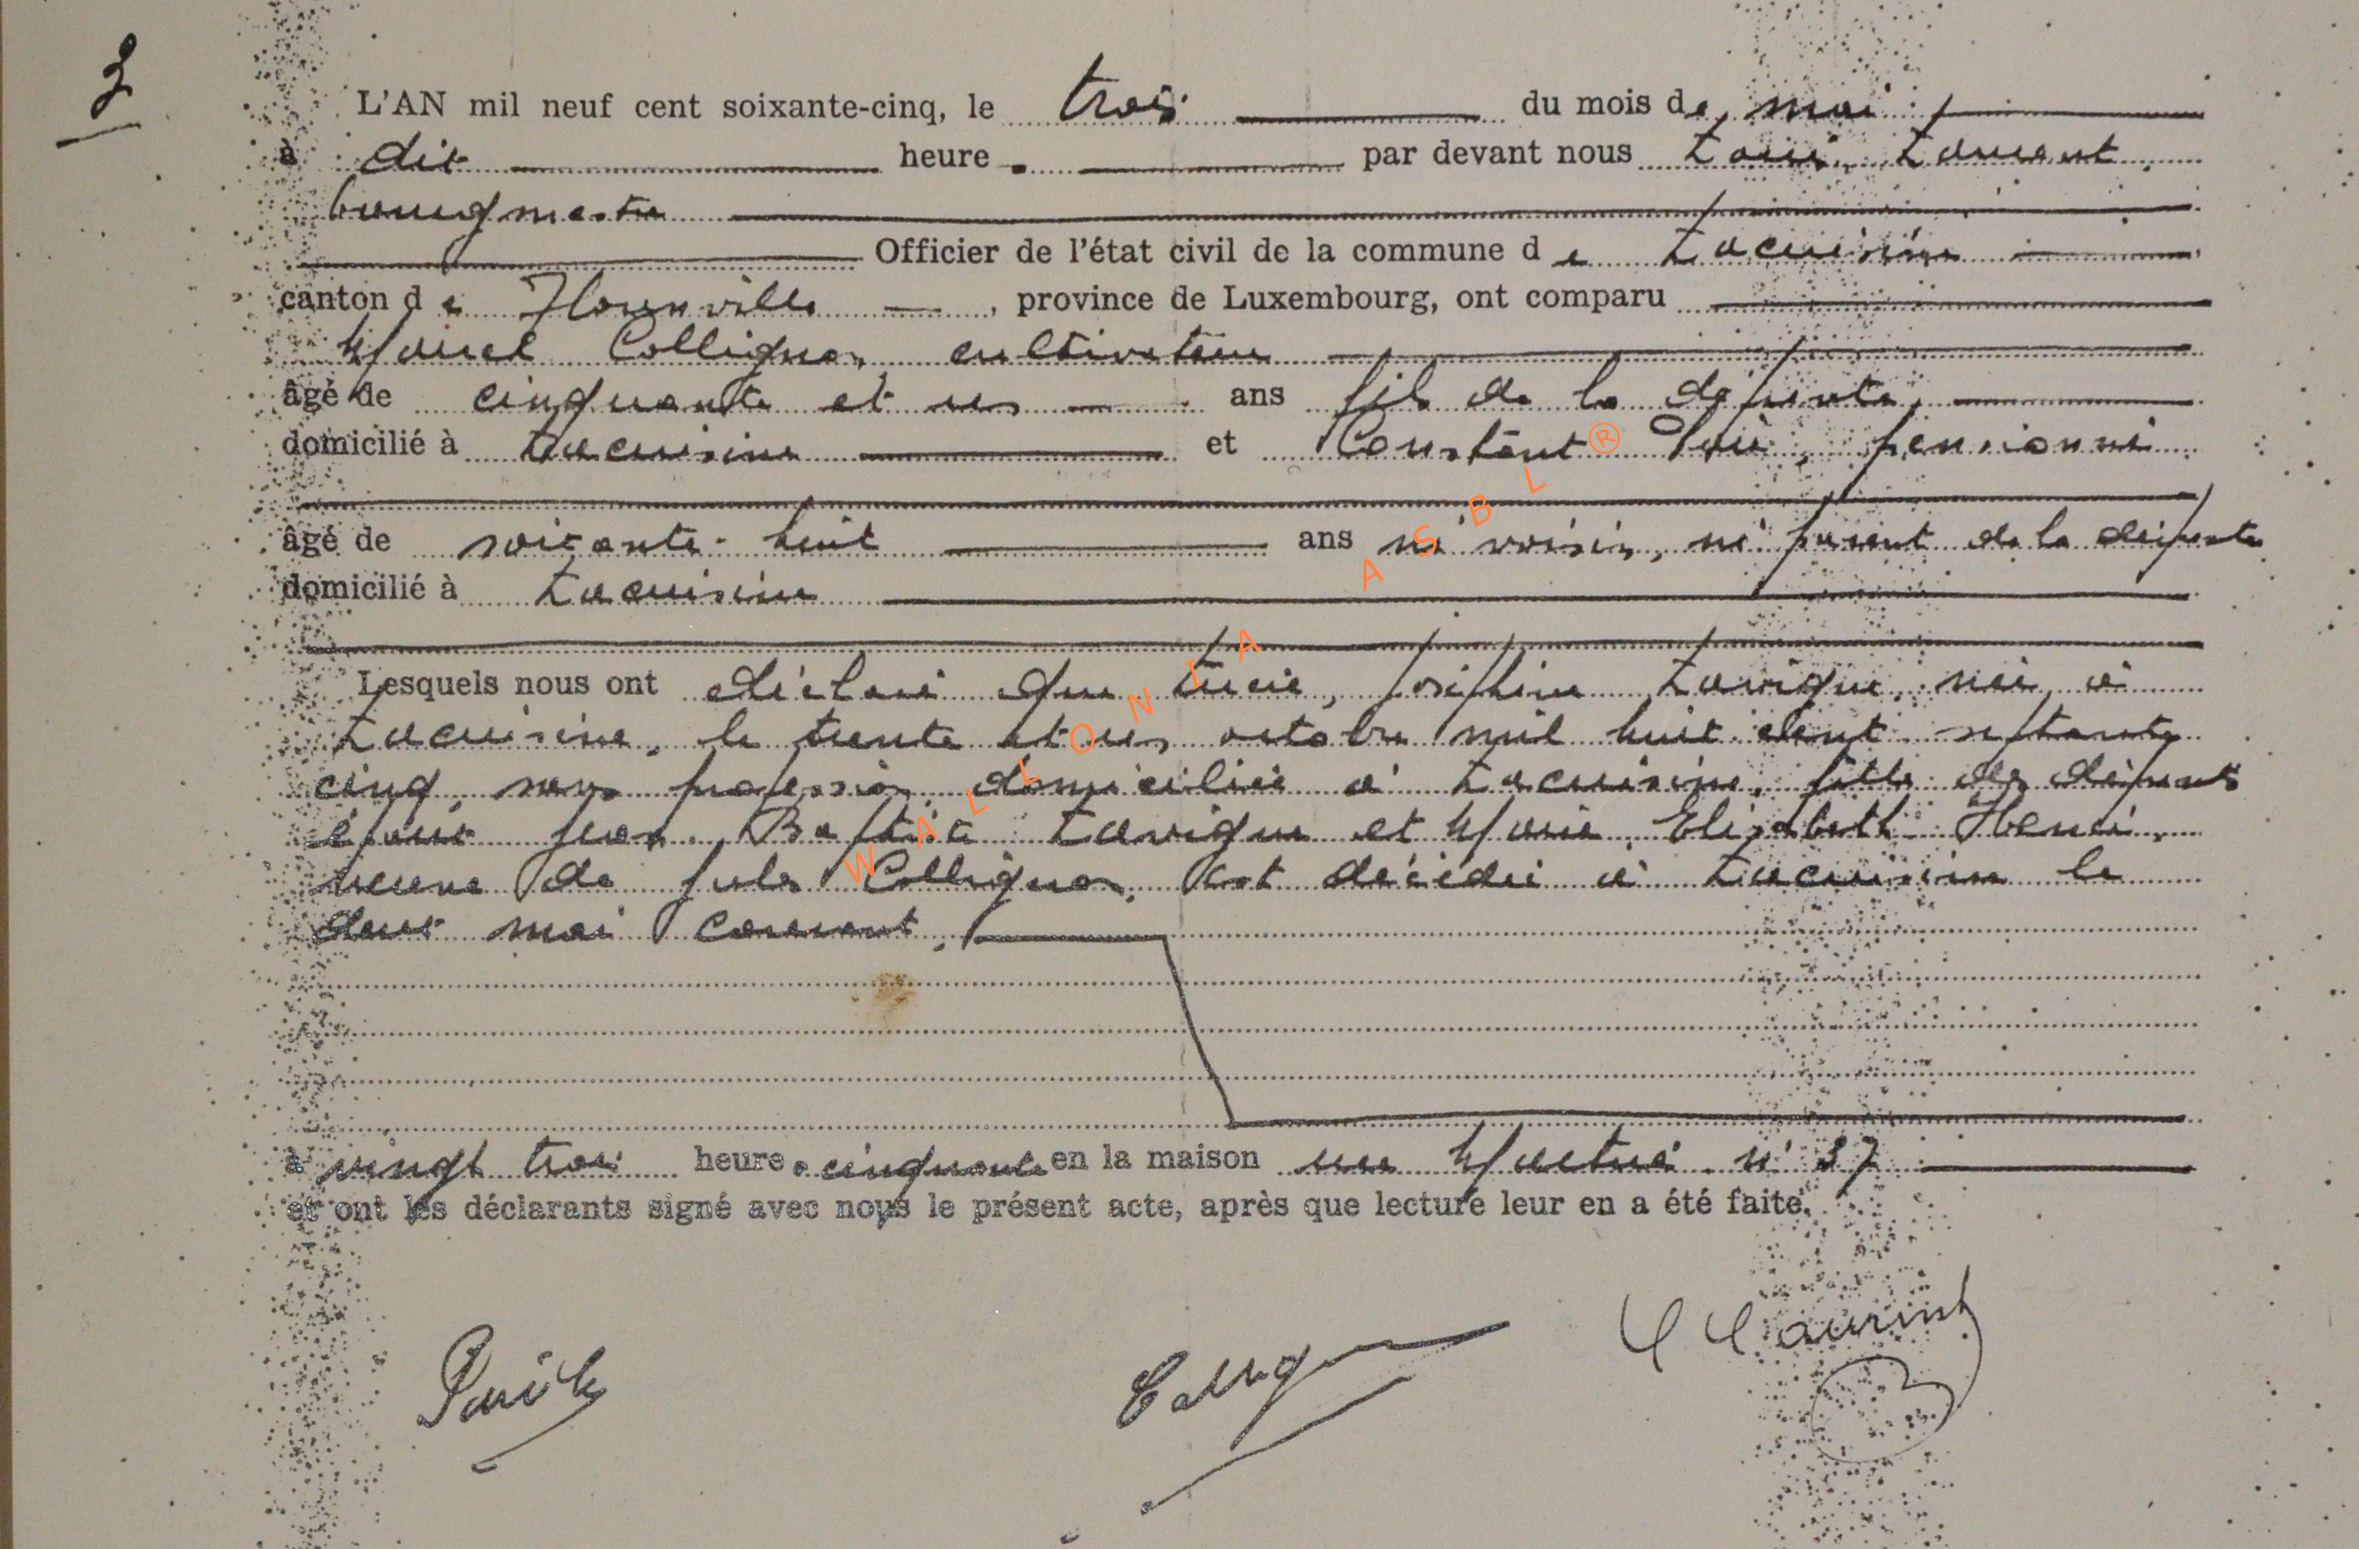 3
L'AN mil neuf cent soixante-cinq, le trois du mois de mai
à dix heures par devant nous Louis Laurent,
bourgmestre
Officier de l'état civil de la commune de Lacuisine
canton de Florenville, province de Luxembourg, ont comparu
Marcel Collignon, cultivateur
âgé de cinquante et un ans fils de la défunte,
domicilié à Lacuisine et Constant, pensionné
âgé de soixante-huit ans ni voisin, ni parent de la défunte
domicilié à Lacuisine
Lesquels nous ont déclaré que Lucie, Joséphine Lavigne, née à
Lacuisine, le trente et un octobre mil huit cent septante
cinq, sans profession, domiciliée à Lacuisine, fille des défunts
époux Jean-Baptiste Lavigne et Marie Elisabeth Henri,
veuve de Jules Collignon, est décédée à Lacuisine le
deux mai courant.
à vingt trois heures cinquante en la maison rue n° 37
et ont les déclarants signé avec nous le présent acte, après que lecture leur en a été faite.
Collignon
L Laurent
WALLONIA ASBL ®